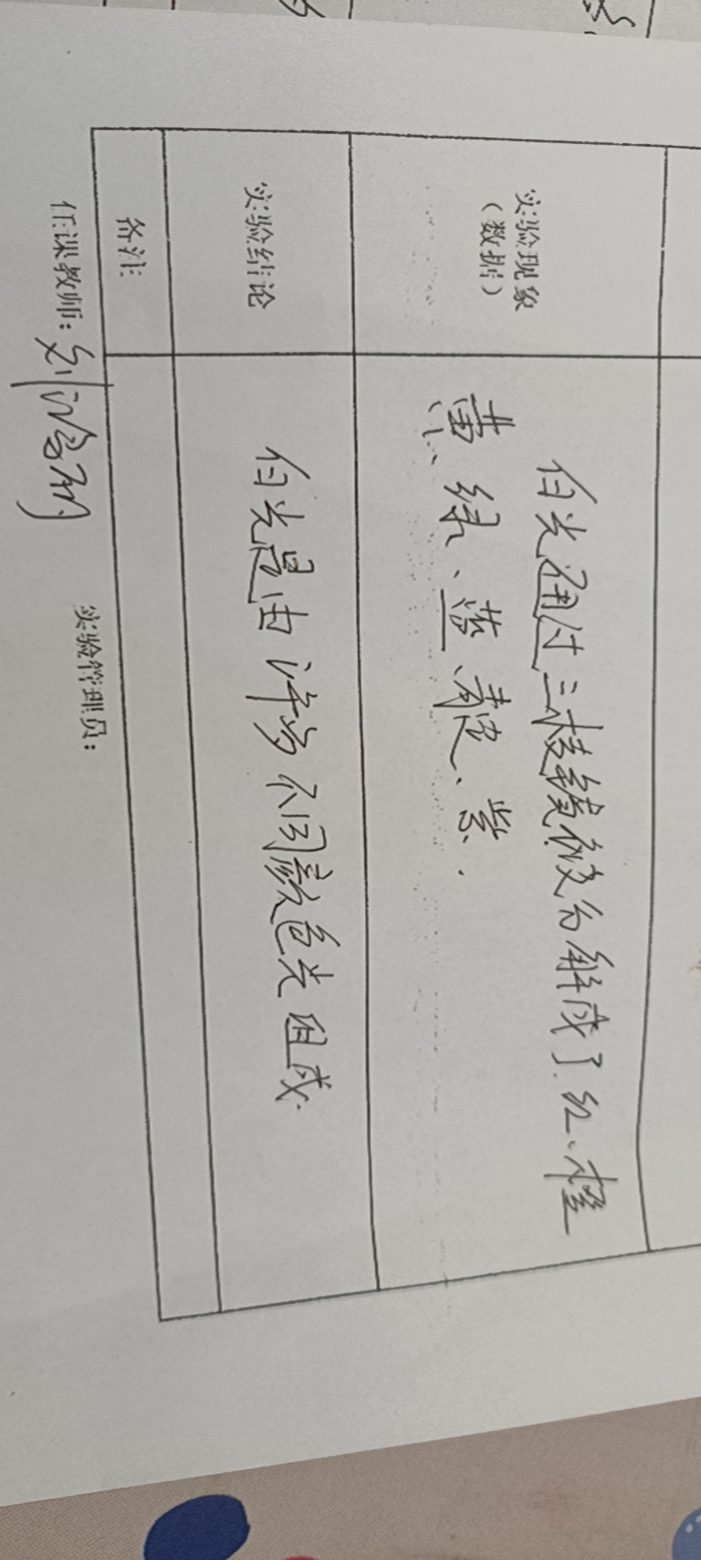 实验现象
（数据）
白光通过三棱镜被分解成了.红、橙
黄、绿、蓝、靛、紫.
实验结论
白光是由许多不同颜色光组成.
备注:
任课教师:
实验管理员: